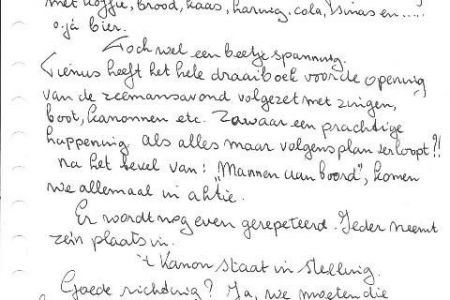 met koffie, brood, kaas, haring, cola, sinas en.....
o ja bier.
Toch wel een beetje spanning.
Tienus heeft het hele draaiboek voor de opening
van de zeemansavond volgezet met zingen,
boot, kanonnen etc. Zowaar een prachtige
happening als alles maar volgens plan verloopt?!
Na het bevel van: "Mannen aan boord", komen
we allemaal in aktie.
Er wordt nog even gerepeteerd. Ieder neemt
zein plaats in.
't Kanon staat in stelling.
Goede richting? Ja, we moeten die